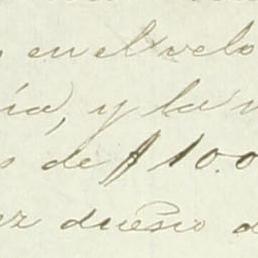 en el velo
ía, y la
de $ 10.0
ez dueño d